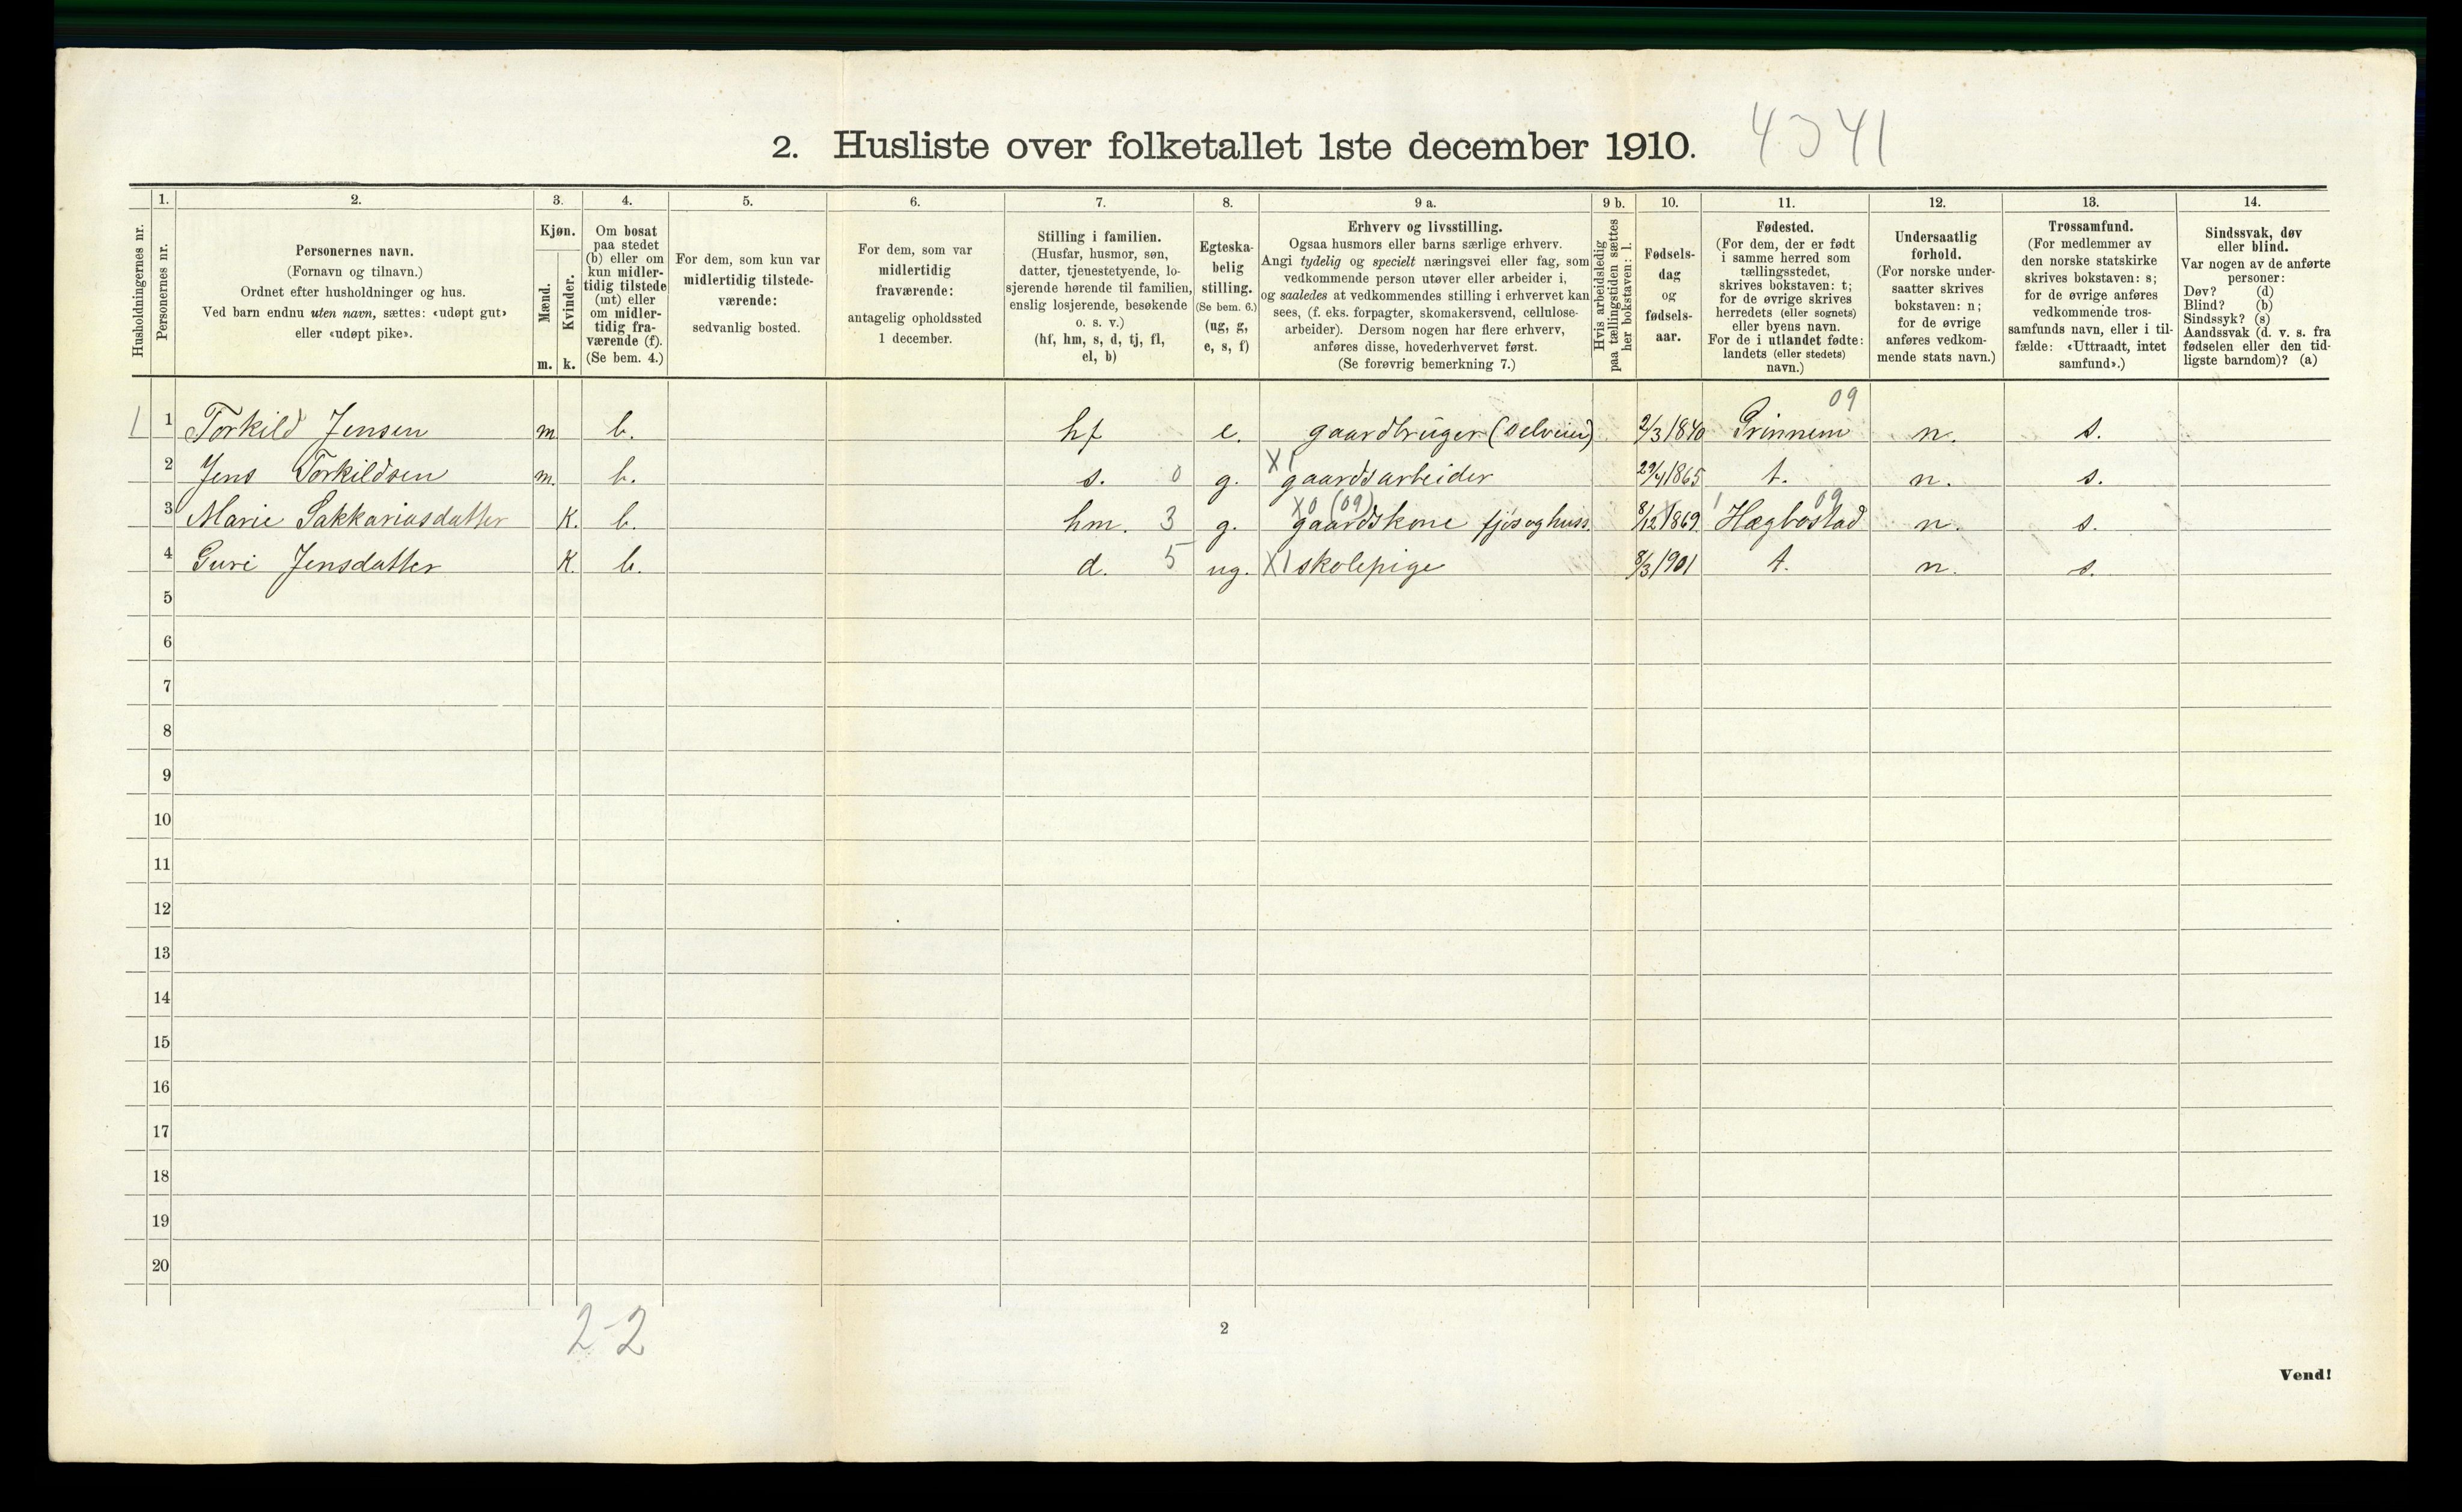 2. Husliste over folketallet 1ste december 1910.
4341
Husholdningernes nr.
1.
Personernes nr.
2.
Personernes navn.
(Fornavn og tilnavn.)
Ordnet efter husholdninger og hus.
Ved barn endnu uten navn, sættes: «udøpt gut»
eller «udøpt pike».
3.
Kjøn.
Mænd.
m.
Kvinder.
k.
4.
Om bosat
paa stedet
(b) eller om
kun midler-
tidig tilstede
(mt) eller
om midler-
tidig fra-
værende (f).
(Se bem. 4.)
5.
For dem, som kun var
midlertidig tilstede-
værende:
sedvanlig bosted.
6.
For dem, som var
midlertidig
fraværende:
antagelig opholdssted
1 december.
7.
Stilling i familien.
(Husfar, husmor, søn,
datter, tjenestetyende, lo-
sjerende hørende til familien,
enslig losjerende, besøkende
o. s. v.)
(hf, hm, s, d, tj, fl,
el, b)
8.
Egteska-
belig
stilling.
(Se bem. 6.)
(ug, g,
e, s, f)
9 a.
Erhverv og livsstilling.
Ogsaa husmors eller barns særlige erhverv.
Angi tydelig og specielt næringsvei eller fag, som
vedkommende person utøver eller arbeider i,
og saaledes at vedkommendes stilling i erhvervet kan
sees, (f. eks. forpagter, skomakersvend, cellulose-
arbeider). Dersom nogen har flere erhverv,
anføres disse, hovederhvervet først.
(Se forøvrig bemerkning 7.)
9 b.
Hvis arbeidsledig
paa tællingstiden sættes
her bokstaven: l.
10.
Fødsels-
dag
og
fødsels-
aar.
11.
Fødested.
(For dem, der er født
i samme herred som
tællingsstedet,
skrives bokstaven: t;
for de øvrige skrives
herredets (eller sognets)
eller byens navn.
For de i utlandet fødte:
landets (eller stedets)
navn.)
12.
Undersaatlig
forhold.
(For norske under-
saatter skrives
bokstaven: n;
for de øvrige
anføres vedkom-
mende stats navn.)
13.
Trossamfund.
(For medlemmer av
den norske statskirke
skrives bokstaven: s;
for de øvrige anføres
vedkommende tros-
samfunds navn, eller i til-
fælde: «Uttraadt, intet
samfund».)
14.
Sindssvak, døv
eller blind.
Var nogen av de anførte
personer:
Døv? (d)
Blind? (b)
Sindssyk? (s)
Aandssvak (d. v. s. fra
fødselen eller den tid-
ligste barndom)? (a)
09
1 1 Torkild Jensen m b. hf e. gaardbruger (selveier) 2/3 1840 Grinnem n. s.
X1
2 Jens Torkildsen m. b. s. 0 g. gaardsarbeider 29/4 1865 t. n. s.
X0 (09) 1 09
3 Marie Sakkariasdatter K. b. hm. 3 g. gaardskone fjøsoghuss. 8/12 1869. Hægbostad n. s.
4 Guri Jensdatter K. b. d. 5 ug. X1 skolepige 8/3 1901 t. n. s.
5
6
7
8
9
10
11
12
13
14
15
16
17
18
19
20
2-2
2
Vend!